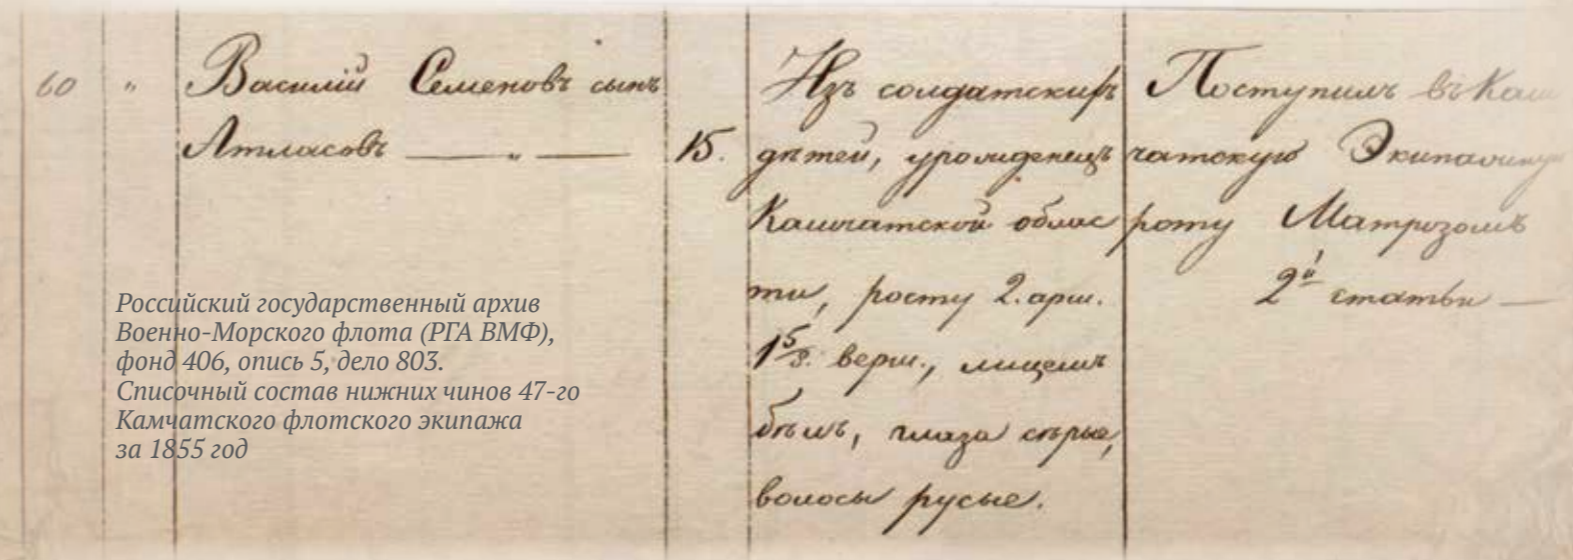 60 " Василій Семеновъ сынъ
Атласовъ — „ —
15.
Изъ солдатскихъ
дѣтей, уроженецъ
Камчатской облас
ти, росту 2. арш.
1 5/8. верш., лицемъ
бѣлъ, глаза сѣрые,
волосы русые.
Поступилъ въ Кам
чатскую Экипажную
роту Матрозомъ
2й статьи —
Российский государственный архив
Военно-Морского флота (РГА ВМФ),
фонд 406, опись 5, дело 803.
Списочный состав нижних чинов 47-го
Камчатского флотского экипажа
за 1855 год